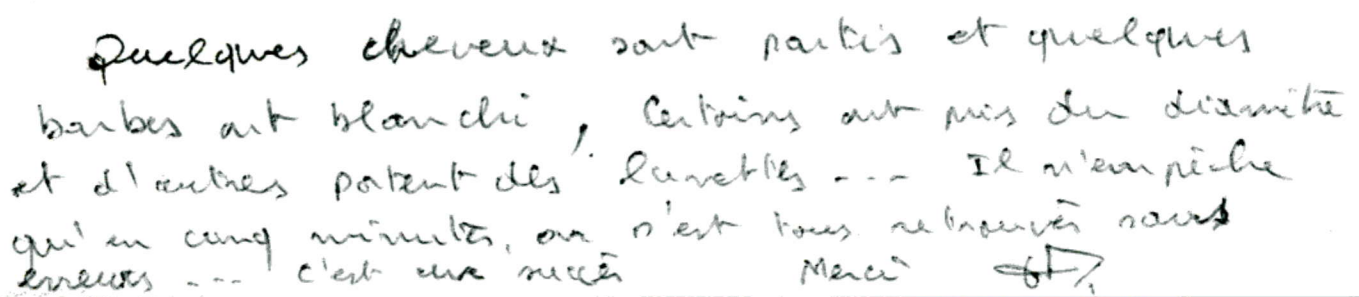 Quelques cheveux sont partis et quelques
barbes ont blanchi, Certains ont pris du diamètre
et d'autres portent des lunettes --- Il n'empêche
qu'en cinq minutes, on s'est tous retrouvés sans
erreurs --- c'est un succès Merci